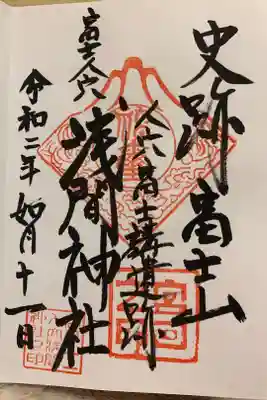 史跡 富士山
人穴富士講遺跡
富士人穴
浅間神社
令和二年 如月十一日